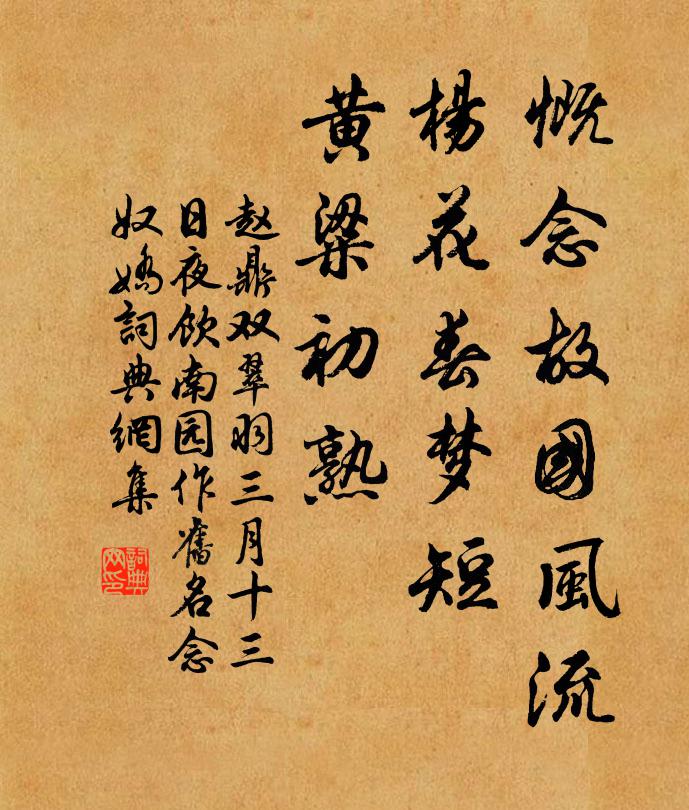 慨念故國風流
楊花春梦短
黃粱初熟
赵鼎双翠羽三月十三
日夜飲南园作舊名念
奴嬌詞典網集
詞典网印